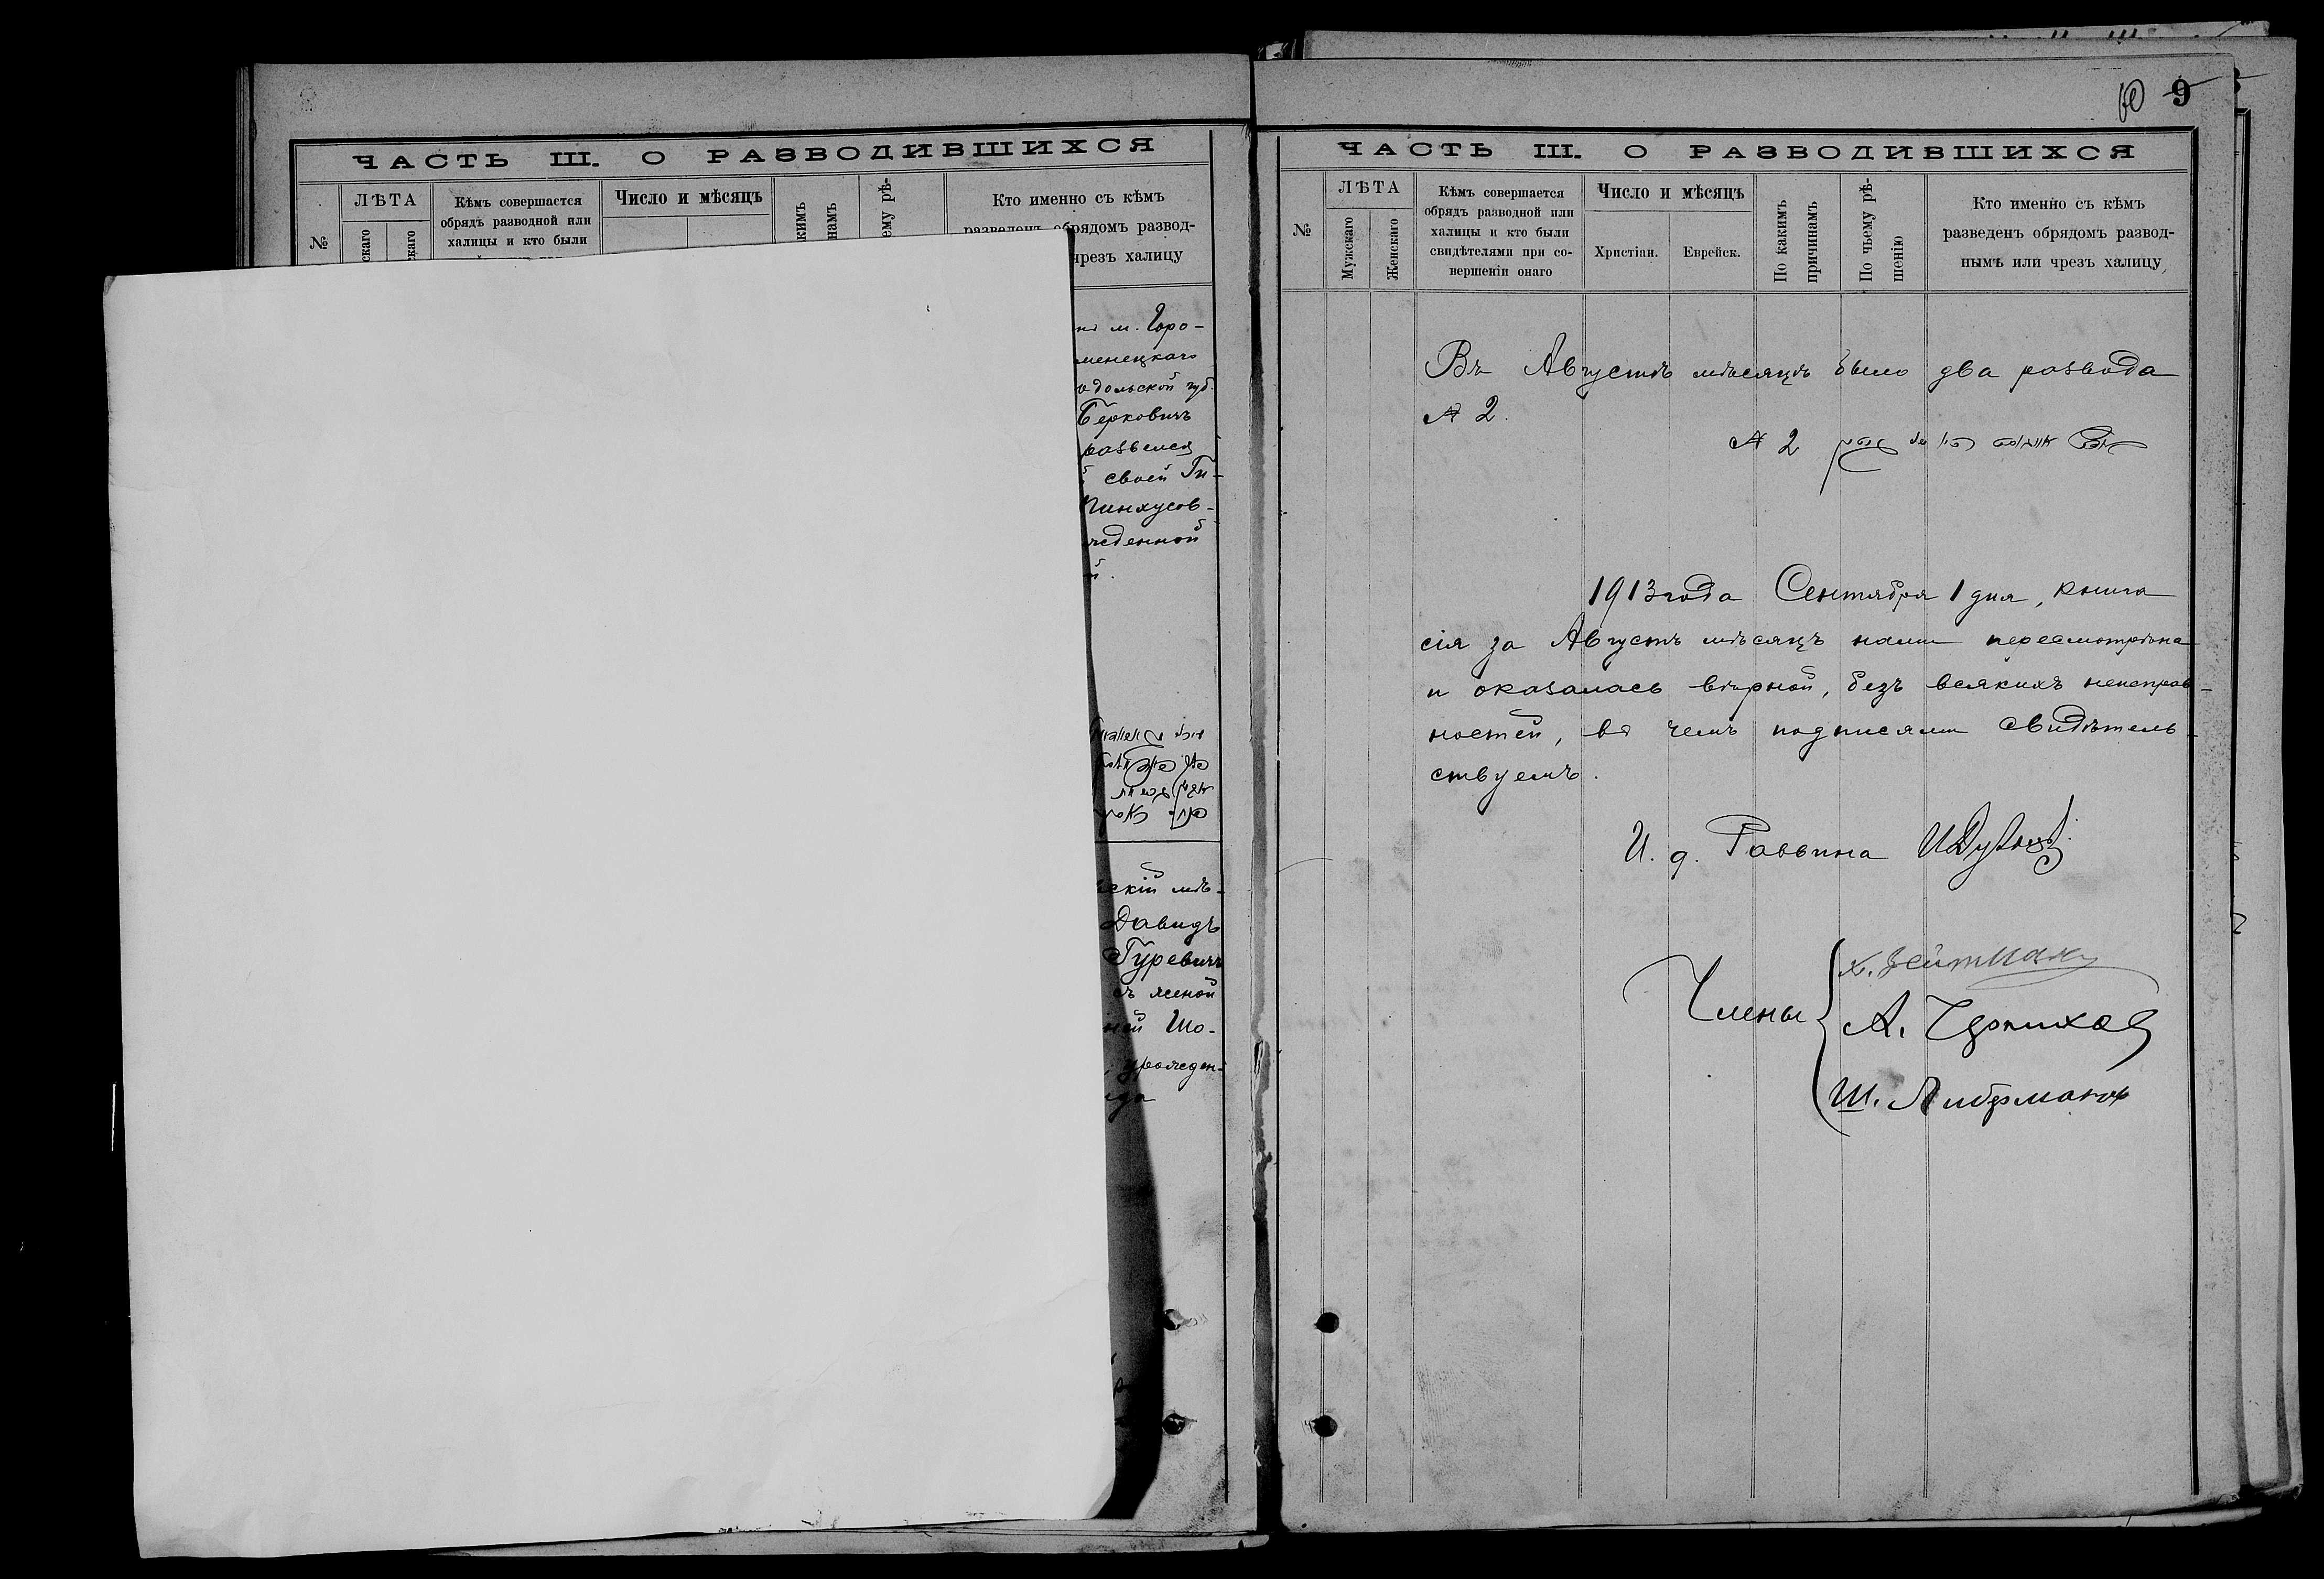 ЧАСТЬ III. О РАЗВОДИВШИХСЯ
№
ЛѢТА
скаго
скаго
Кѣмъ совершается
обрядъ разводной или
халицы и кто были
Число и мѣсяцъ
кимъ
намъ
ему рѣ-
Кто именно съ кѣмъ
разведенъ обрядомъ развод-
чрезъ халицу
м. Горо-
менецкаго
одольской губ.
Берковичъ
развелся
своей Ги-
Пинхусов-
жденной
й.
скій мѣ-
Давидъ
Гуревичъ
съ женой
ней Шо-
урожден-
10 9
ЧАСТЬ III. О РАЗВОДИВШИХСЯ
№
ЛѢТА
Мужскаго
Женскаго
Кѣмъ совершается
обрядъ разводной или
халицы и кто были
свидѣтелями при со-
вершеніи онаго
Число и мѣсяцъ
Христіан.
Еврейск.
По какимъ
причинамъ
По чьему рѣ-
шенію
Кто именно съ кѣмъ
разведенъ обрядомъ развод-
нымъ или чрезъ халицу
Въ Августѣ мѣсяцѣ было два развода
№ 2.
№ 2
1913 года Сентября 1 дня, книга
сія за Августъ мѣсяцъ нами пересмотрѣна
и оказалась вѣрной, безъ всякихъ неисправ-
ностей, въ чемъ подписями свидѣтель-
ствуемъ.
И. д. Раввина
Члены
Х. Зейтманъ
А.
Ш. Либерманъ